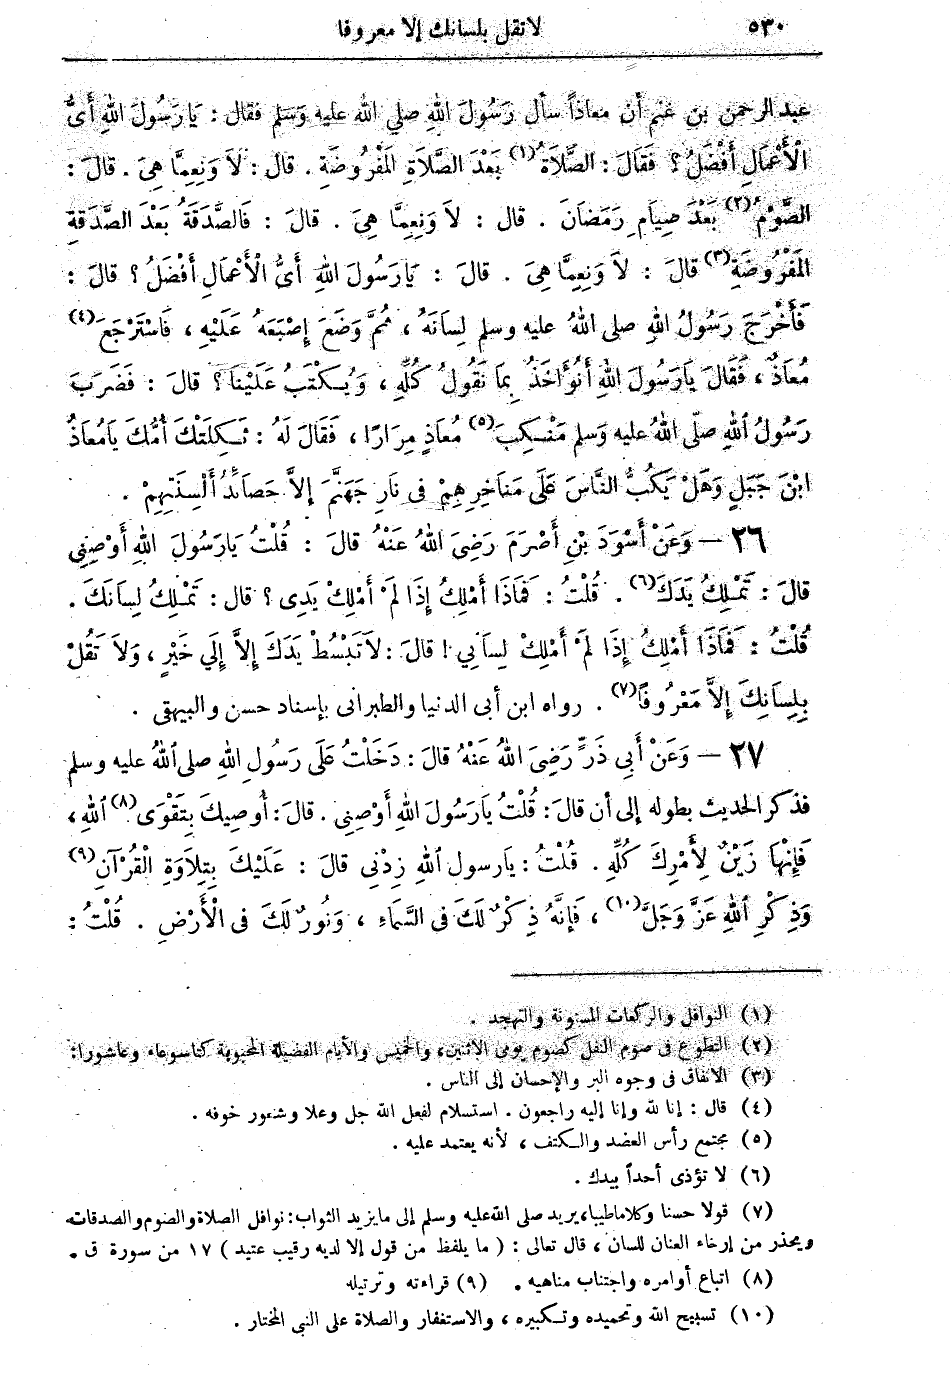 ٥٣٠ لا تقل بلسانك إلا معروفا
عبد الرحمن بن غنم أن معاذاً سأل رَسُولَ اللهِ صلي الله عليه وَسَلم فقال : يَارَسُولَ اللهِ أَىُّ
الْأَعْمَالِ أَفْضَلُ ؟ فَقَالَ : الصَّلَاةُ (١) بَعْدَ الصَّلَاةِ الْمَفْرُوضَةِ . قال : لَا وَنِعِمَّا هِىَ . قَالَ :
الصَّوْمُ (٢) بَعْدَ صِيَامِ رَمَضَانَ . قال : لَا وَنِعِمَّا هِىَ . قَالَ : فَالصَّدَقَةُ بَعْدَ الصَّدَقَةِ
الْمَفْرُوضَةِ (٣) قَالَ : لَا وَنِعِمَّا هِىَ . قَالَ : يَارَسُولَ اللهِ أَىُّ الْأَعْمَالِ أَفْضَلُ ؟ قَالَ :
فَأَخْرَجَ رَسُولُ اللهِ صلى اللهُ عليه وسلم لِسَانَهُ ، ثُمَّ وَضَعَ إِصْبَعَهُ عَلَيْهِ ، فَاسْتَرْجَعَ (٤)
مُعَاذٌ ، فَقَالَ يَارَسُولَ اللهِ أَنُؤَاخَذُ بِمَا نَقُولُ كُلِّهِ ، وَيُكْتَبُ عَلَيْنَا ؟ قَالَ : فَضَرَبَ
رَسُولُ اللهِ صلّى اللهُ عليه وَسلم مَنْكِبَ (٥) مُعَاذٍ مِرَارًا ، فَقَالَ لَهُ : ثَكِلَتْكَ أُمُّكَ يَامُعَاذُ
ابْنَ جَبَلٍ وَهَلْ يَكُبُّ النَّاسَ عَلَى مَنَاخِرِهِمْ فى نَارِ جَهَنَّمَ إِلاَّ حَصَائِدُ أَلْسِنَتِهِمْ .
٢٦ — وَعَنْ أَسْوَدَ بْنِ أَصْرَمَ رَضِىَ اللهُ عَنْهُ قالَ : قُلْتُ يَارَسُولَ اللهِ أَوْصِنِي
قالَ : تَمْلِكُ يَدَكَ (٦) . قُلْتُ : فَمَاذَا أَمْلِكُ إِذَا لَمْ أَمْلِكْ يَدِى ؟ قال : تَمْلِكُ لِسَانَكَ .
قُلْتُ : فَمَاذَا أَمْلِكُ إِذَا لَمْ أَمْلِكْ لِسَانِي ! قالَ : لاَتَبْسُطْ يَدَكَ إِلاَّ إِلَى خَيْرٍ ، وَلاَ تَقُلْ
بِلِسَانِكَ إِلاَّ مَعْرُوفاً (٧) . رواه ابن أبى الدنيا والطبرانى بإسناد حسن والبيهقى .
٢٧ — وَعَنْ أَبِي ذَرٍّ رَضِىَ اللهُ عَنْهُ قالَ : دَخَلْتُ عَلَى رَسُولِ اللهِ صلى اللهُ عليه وسلم
فذكر الحديث بطوله إلى أن قالَ : قُلْتُ يَارَسُولَ اللهِ أَوْصِنِي . قالَ : أُوصِيكَ بِتَقْوَى (٨) اللهِ ،
فَإِنَّهَا زَيْنٌ لِأَمْرِكَ كُلِّهِ . قُلْتُ : يَارسول اللهِ زِدْنِي قالَ : عَلَيْكَ بِتِلاَوَةِ الْقُرْآنِ (٩)
وَذِكْرِ اللهِ عَزَّ وَجَلَّ (١٠) ، فَإِنَّهُ ذِكْرٌ لَكَ فى السَّمَاءِ ، وَنُورٌ لَكَ فى الْأَرْضِ . قُلْتُ :
(١) النوافل والركعات المسنونة والتهجد .
(٢) التطوع فى صوم النفل كصوم يومى الاثنين، والخميس والأيام الفضيلة المحبوبة كتاسوعاء وعاشوراء:
(٣) الانفاق فى وجوه البر والإحسان إلى الناس .
(٤) قال : إنا لله وإنا إليه راجعون . استسلام لفعل الله جل وعلا وشعور خوفه .
(٥) مجتمع رأس العضد والكتف ، لأنه يعتمد عليه .
(٦) لا تؤذى أحداً بيدك .
(٧) قولا حسنا وكلاما طيبا، يريد صلى الله عليه وسلم إلى ما يزيد الثواب : نوافل الصلاة والصوم والصدقات
ويحذر من إرخاء العنان للسان ، قال تعالى : ( ما يلفظ من قول إلا لديه رقيب عتيد ) ١٧ من سورة ق .
(٨) اتباع أوامره واجتناب مناهيه . (٩) قراءته وترتيله
(١٠) تسبيح الله وتحميده وتكبيره ، والاستغفار والصلاة على النبى المختار .